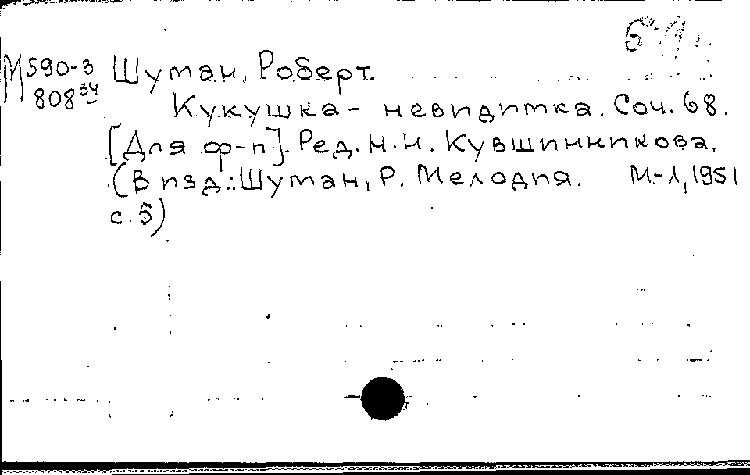 М590-3 Шуман, Роберт.
808³⁴
Кукушка - невидимка. Соч. 68.
[Для ф-п]. Ред. Н.Н. Кувшинникова.
(В изд.: Шуман, Р. Мелодия. М.-Л, 1951
с. 5)